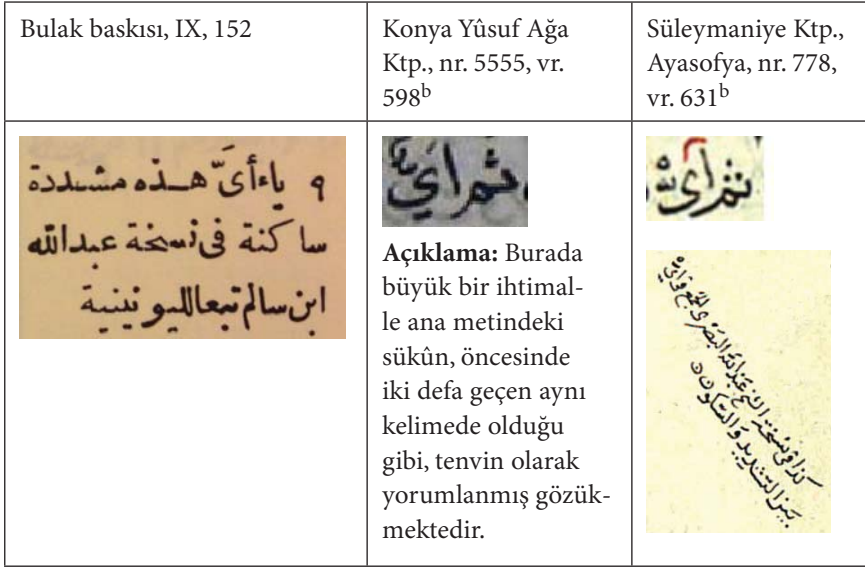 Bulak baskısı, IX, 152
Konya Yûsuf Ağa
Ktp., nr. 5555, vr.
598b
Süleymaniye Ktp.,
Ayasofya, nr. 778,
vr. 631b
٩ ياء أىّ هذه مشددة
ساكنة فى نسخة عبدالله
ابن سالم تبعا لليونينية
ثم أي
Açıklama: Burada
büyük bir ihtimal-
le ana metindeki
sükûn, öncesinde
iki defa geçen aynı
kelimede olduğu
gibi, tenvin olarak
yorumlanmış gözük-
mektedir.
ثم أي
كذا في نسخة الشيخ عبد الله البصري الجمع
بين التشديد والسكون